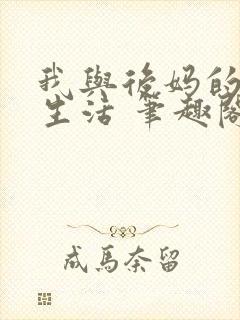 我與後妈的
生活 筆趣閣
成馬奈留